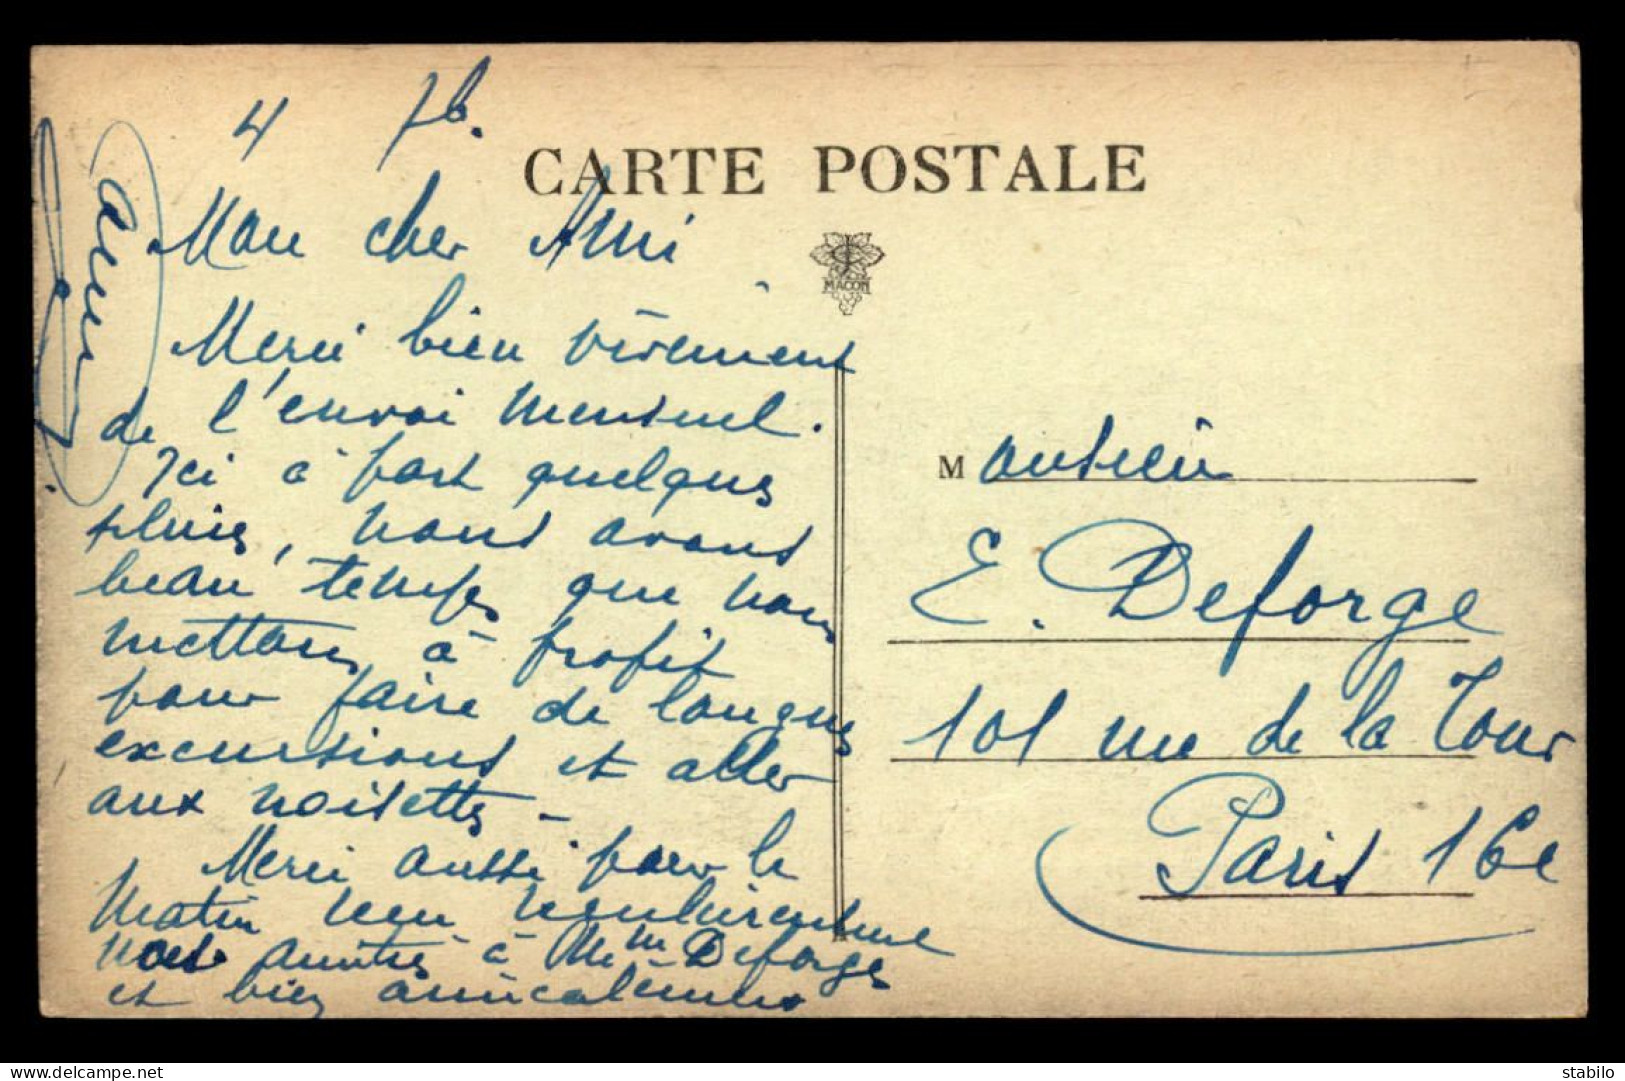 4 7b.
CARTE POSTALE
Mon cher Ami
MACON
Merci bien vivement
de l'envoi mensuel.
Ici à part quelques
pluies, nous avons
beau temps que nous
mettons à profit
pour faire de longues
excursions et aller
aux noisettes -
Merci aussi pour le
Matin reçu
nos amitiés à Mme Deforge
et bien amicalement
Monsieur
E. Deforge
101 rue de la Tour
Paris 16e
delcampe.net
stabilo